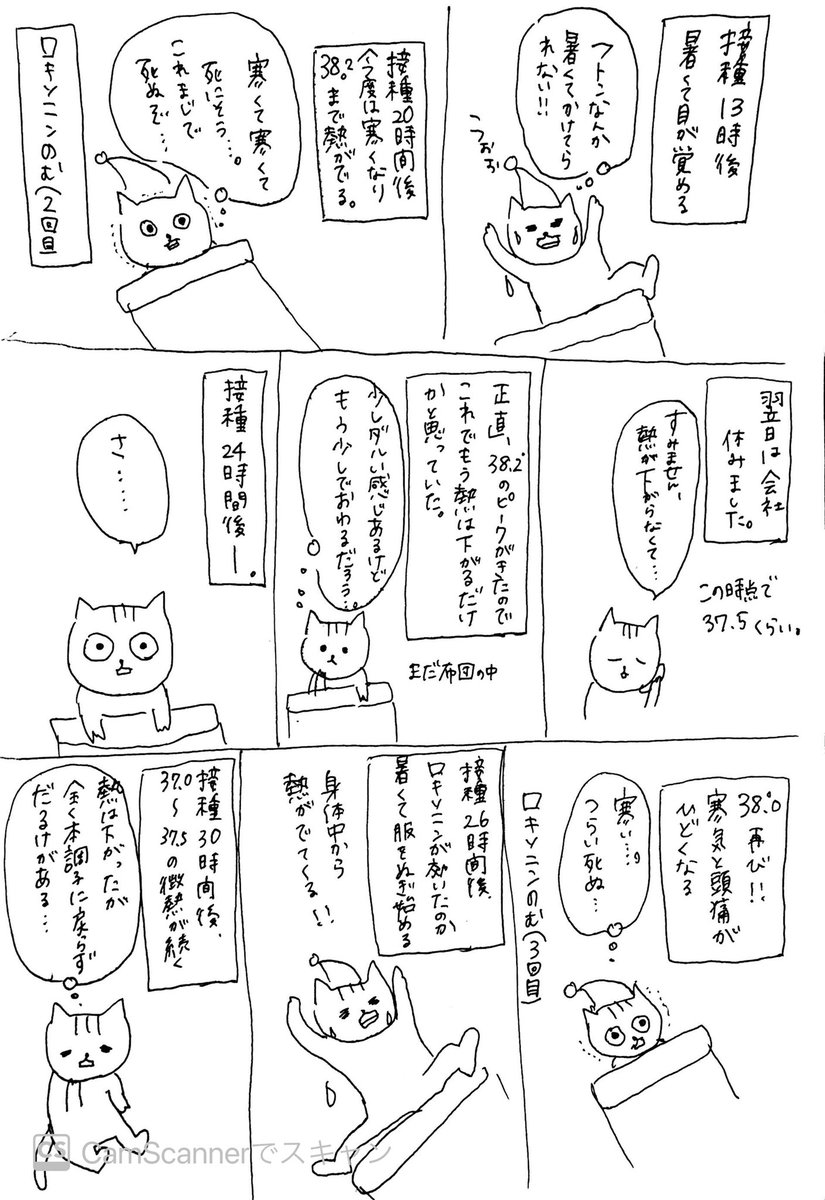 接種13時後
暑くて目が覚める
フトンなんか
暑くてかけてら
れない!!
うおぉ
接種20時間後
今度は寒くなり
38.2まで熱がでる。
寒くて寒くて
死にそう…。
これまじで
死ぬぞ…
ロキソニンのむ(2回目)
翌日は会社
休みました。
すみません、
熱が下がらなくて…
この時点で
37.5くらい。
正直、38.2°のピークがきたので
これでもう熱は下がるだけ
かと思っていた。
少しダルい感じあるけど
もう少しでおわるだろう…。
まだ布団の中
接種24時間後ー。
さ…‥
38.0再び!!
寒気と頭痛が
ひどくなる
寒い…。
つらい死ぬ…
ロキソニンのむ(3回目)
接種26時間後、
ロキソニンが効いたのか
暑くて服をぬぎ始める
身体中から
熱がでてくる!!
接種30時間後、
37.0~37.5の微熱が続く
熱は下がったが
全く本調子に戻らず
だるけがある…
CS CamScannerでスキャン